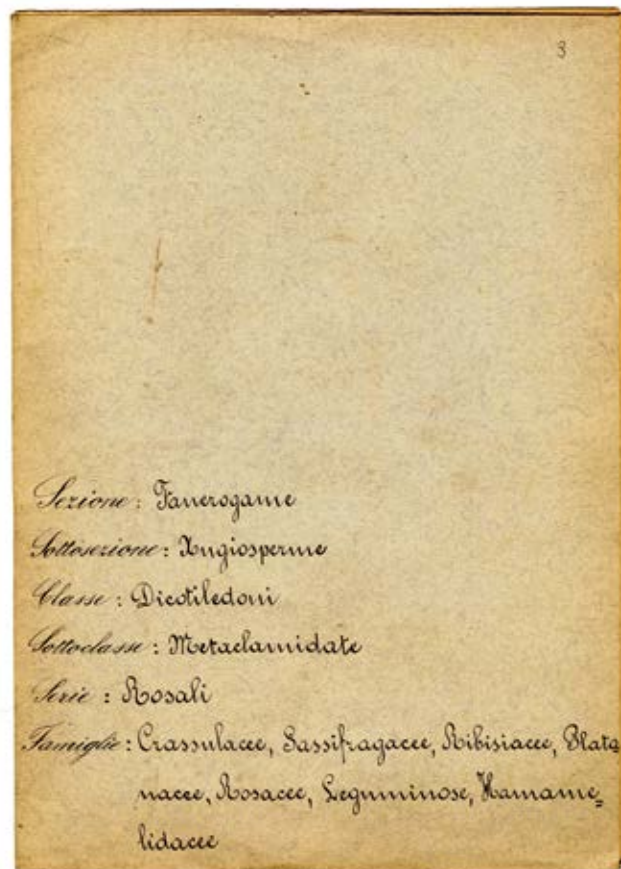 8
Sezione: Fanerogame
Sottosezione: Angiosperme
Classe: Dicotiledoni
Sottoclasse: Metaclamidate
Serie: Rosali
Famiglie: Crassulacee, Sassifragacee, Ribisiacee, Plata=
nacee, Rosacee, Leguminose, Hamame=
lidacee